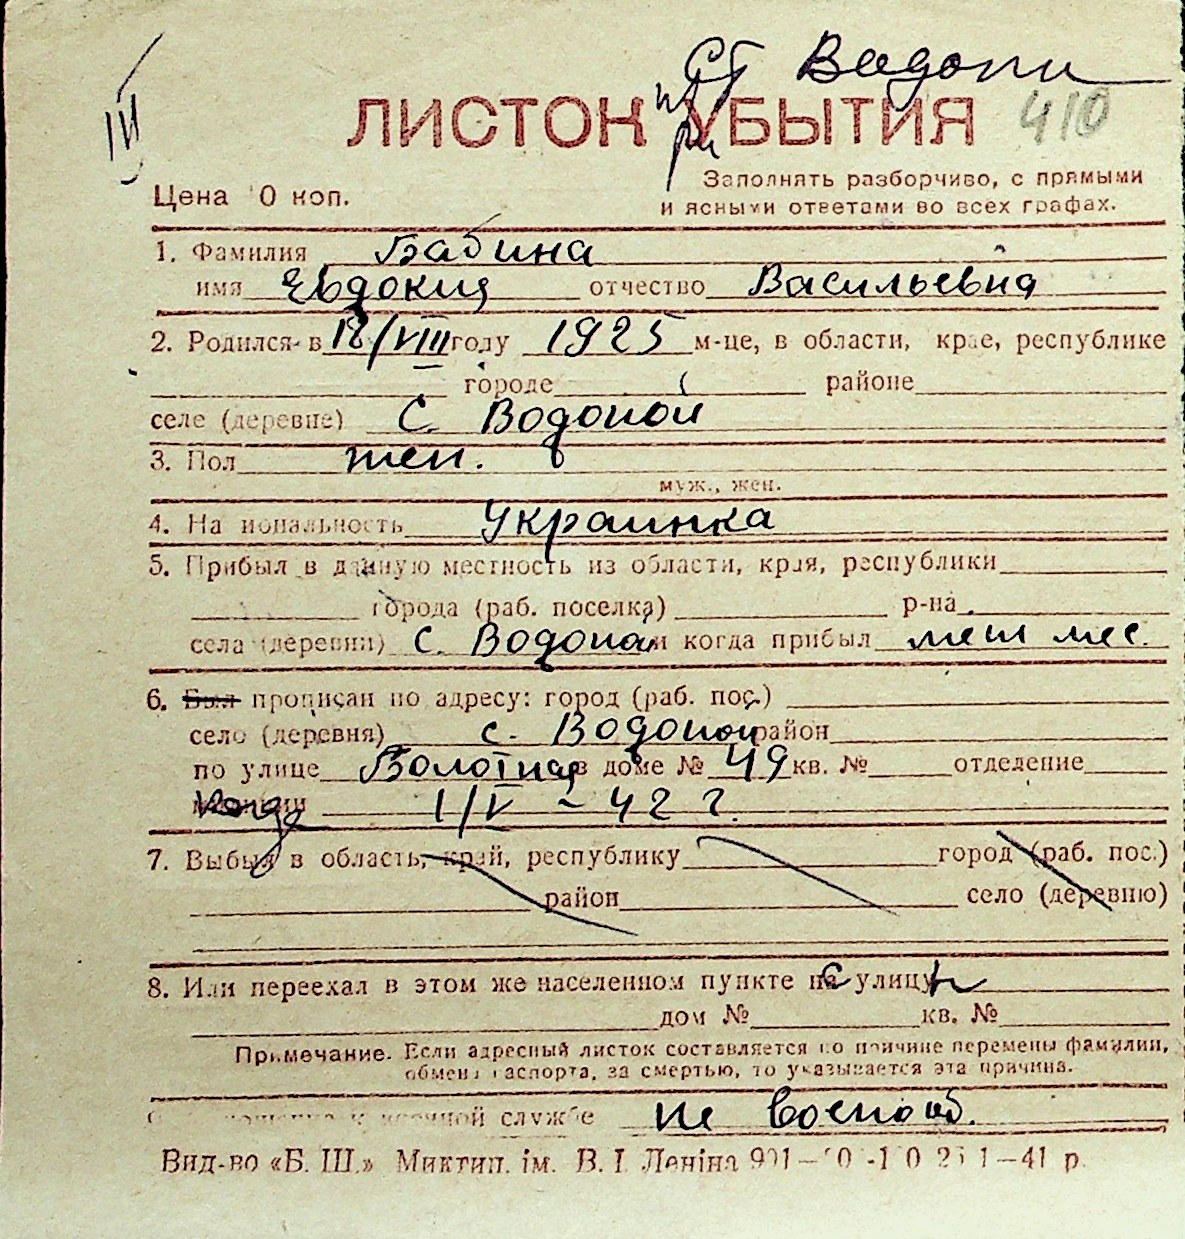 ст Водопи
ЛИСТОК при УБЫТИЯ 410
III
Заполнять разборчиво, с прямыми
Цена 10 коп. и ясными ответами во всех графах.
1. Фамилия Бабина
имя Евдокия отчество Васильевна
2. Родился в 12/VIII году 1925 м-це, в области, крае, республике
городе районе
селе (деревне) С. Водопой
3. Пол жен.
муж., жен.
4. Национальность Украинка
5. Прибыл в данную местность из области, края, республики
города (раб. поселка) р-на
села (деревни) С. Водопой и когда прибыл мест жес.
6. Был прописан по адресу: город (раб. пос.)
село (деревня) с. Водопой район
по улице Болотная в доме № 49 кв. № отделение
Когда 1/V - 42 г.
7. Выбыл в область, край, республику город (раб. пос.)
район село (деревню)
8. Или переехал в этом же населенном пункте на с улицу
дом № кв. №
Примечание. Если адресный листок составляется по причине перемены фамилии,
обмена паспорта, за смертью, то указывается эта причина.
Отношение к военной службе не военнооб.
Вид-во «Б. Ш.» Миктип. ім. В. І. Леніна